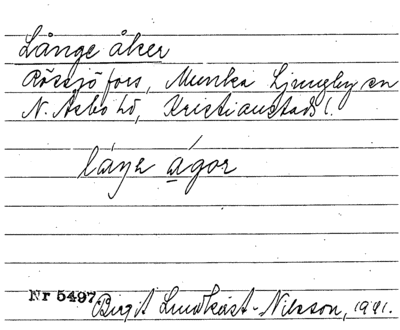 Långe åker
Rössjöfors, Munka Ljungby sn
N. Åsbo hd, Kristianstads l.
ágor
Nr 5497 Birgit Lindkvist-Nilsson, 1941.